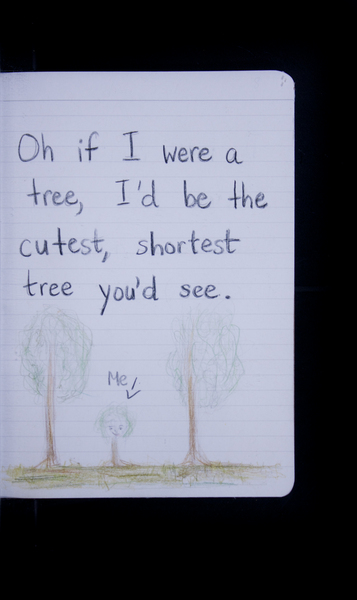 Oh if I were a
tree, I'd be the
cutest, shortest
tree you'd see.
Me